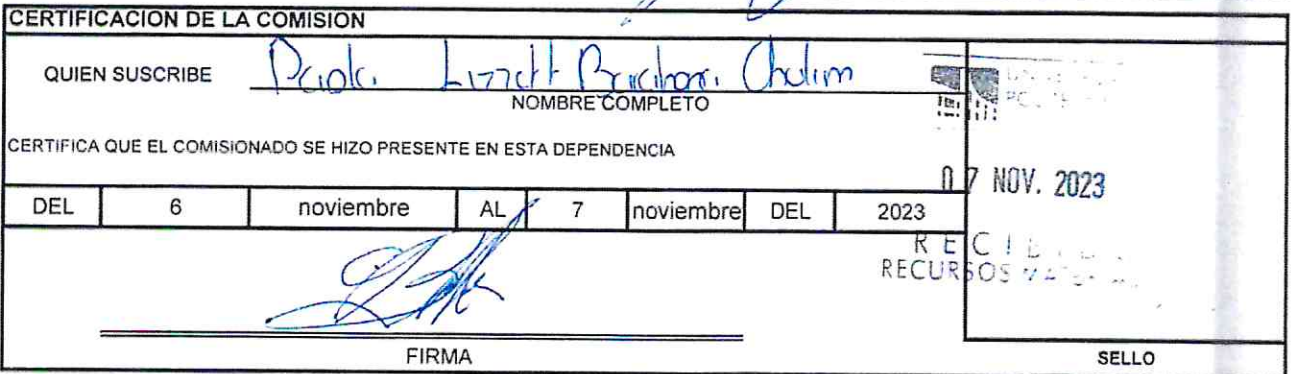 CERTIFICACION DE LA COMISION
QUIEN SUSCRIBE Paola Lizzett Chulim
NOMBRE COMPLETO
CERTIFICA QUE EL COMISIONADO SE HIZO PRESENTE EN ESTA DEPENDENCIA
07 NOV. 2023
DEL 6 noviembre AL 7 noviembre DEL 2023
RECURSOS
FIRMA
SELLO